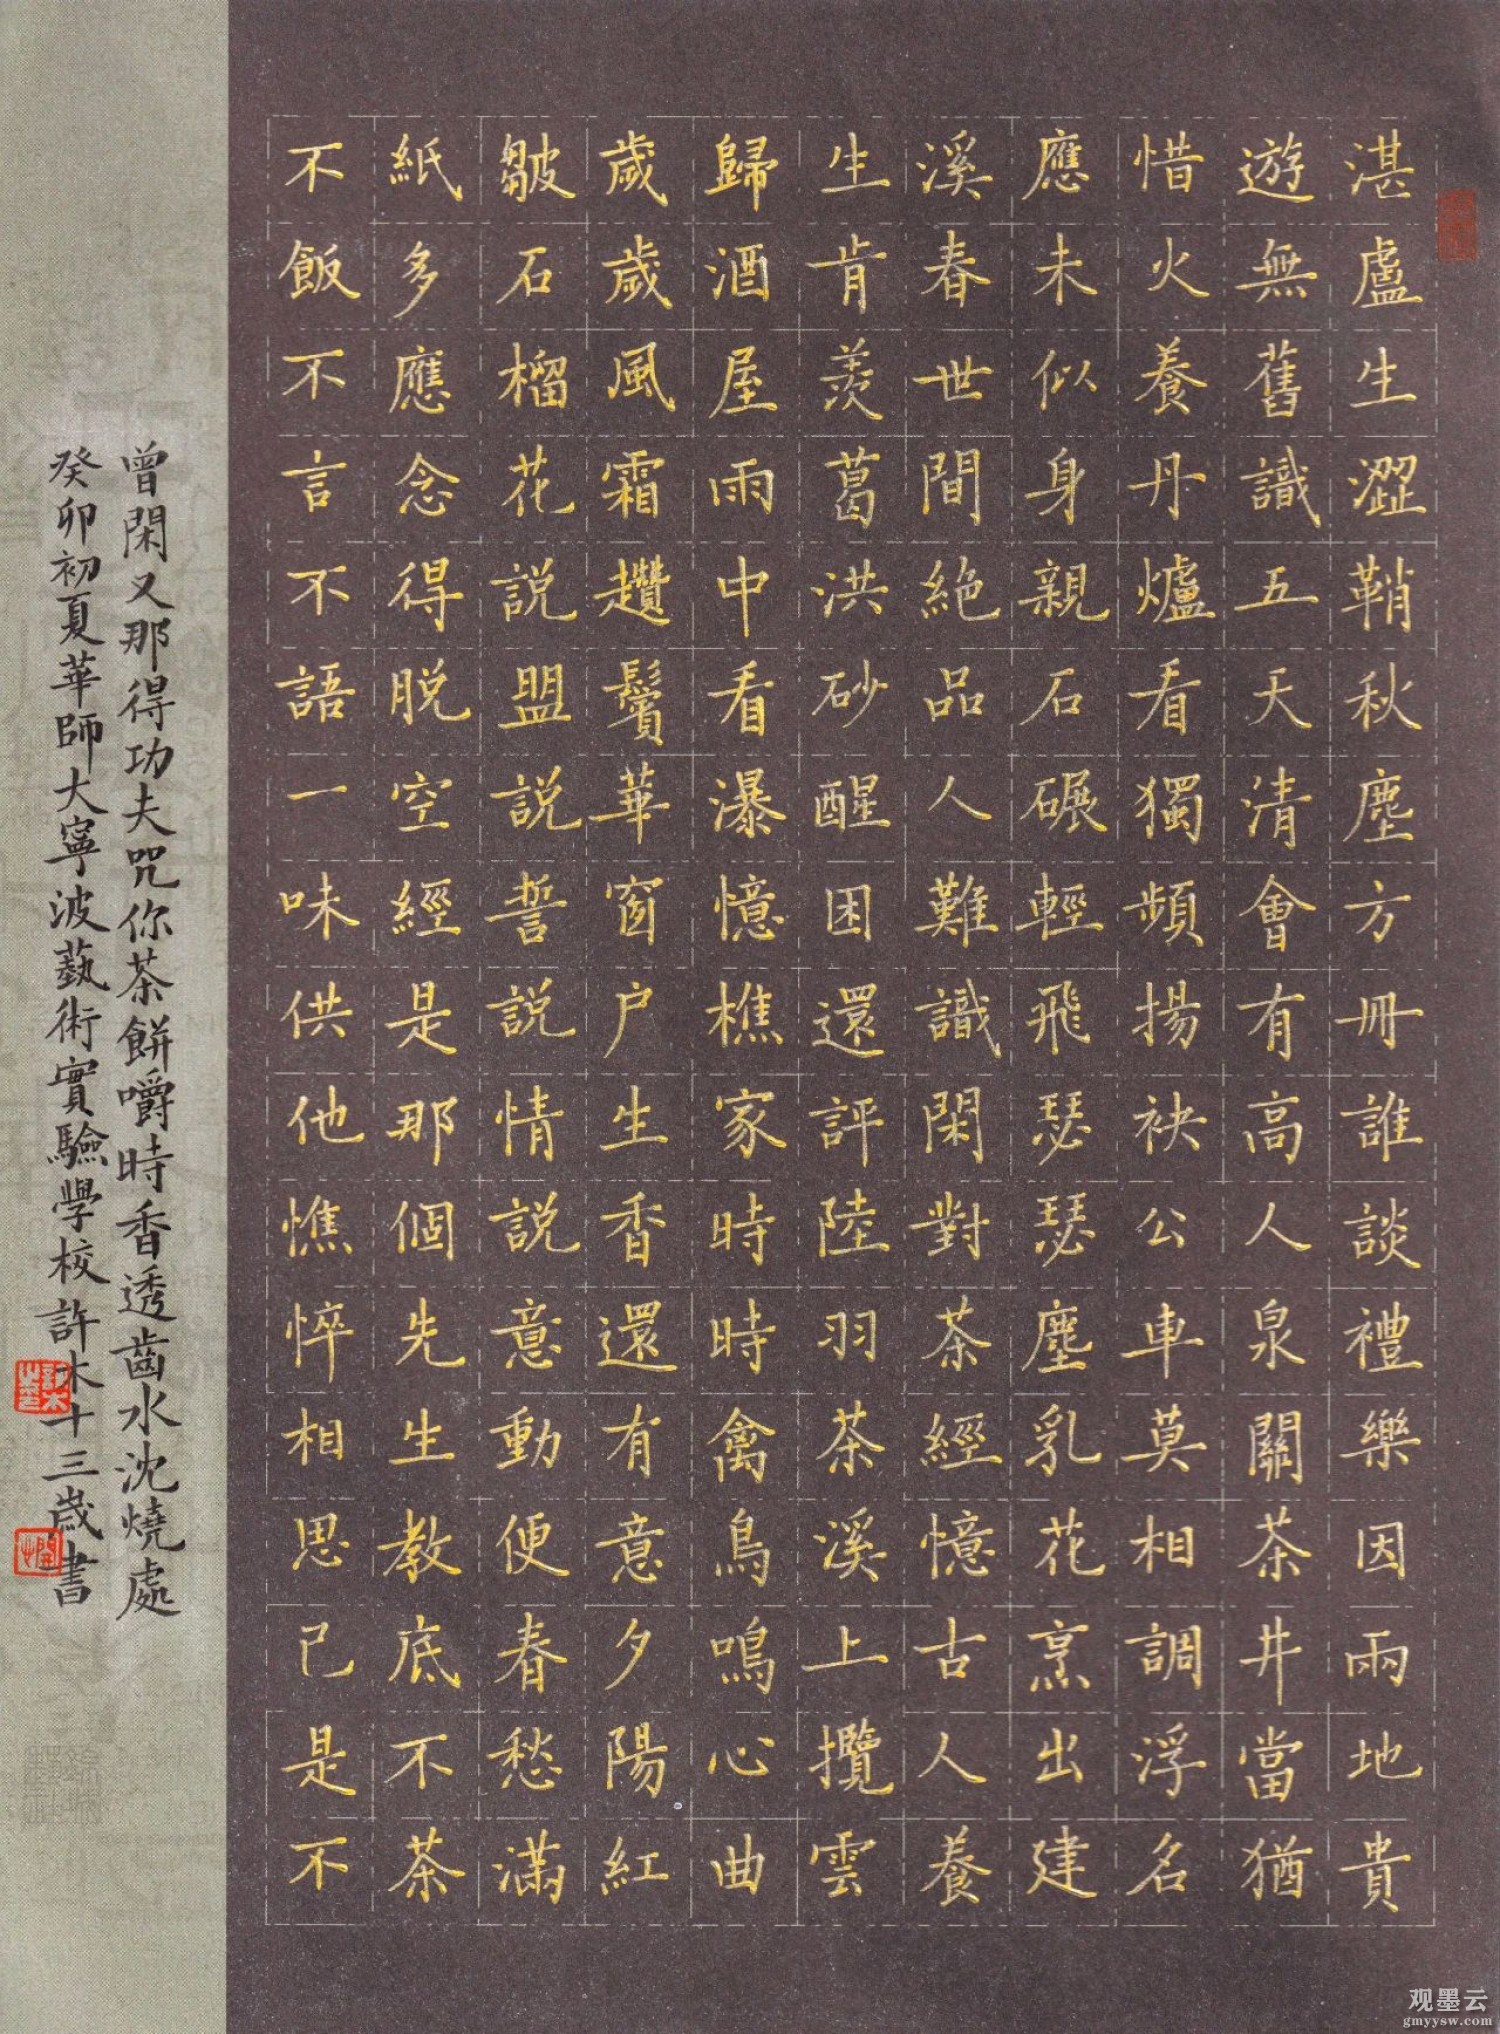 湛盧生澀鞘秋塵方冊誰談禮樂因兩地貴
遊無舊識五天清會有高人泉關茶井當猶
惜火養丹爐看獨頻揚袂公車莫相調浮名
應未似身親石碾輕飛瑟瑟塵乳花烹出建
溪春世間絕品人難識閑對茶經憶古人養
生肯羨葛洪砂醒困還評陸羽茶溪上攬雲
歸酒屋雨中看瀑憶樵家時時禽鳥鳴心曲
歲歲風霜趲鬢華窗户生香還有意夕陽紅
皺石榴花說盟說誓說情說意動便春愁滿
紙多應念得脱空經是那個先生教底不茶
不飯不言不語一味供他憔悴相思已是不
曾閑又那得功夫咒你茶餅嚼時香透齒水沈燒處
癸卯初夏華師大寧波藝術實驗學校許木十三歲書
观墨云
gmyysw.com